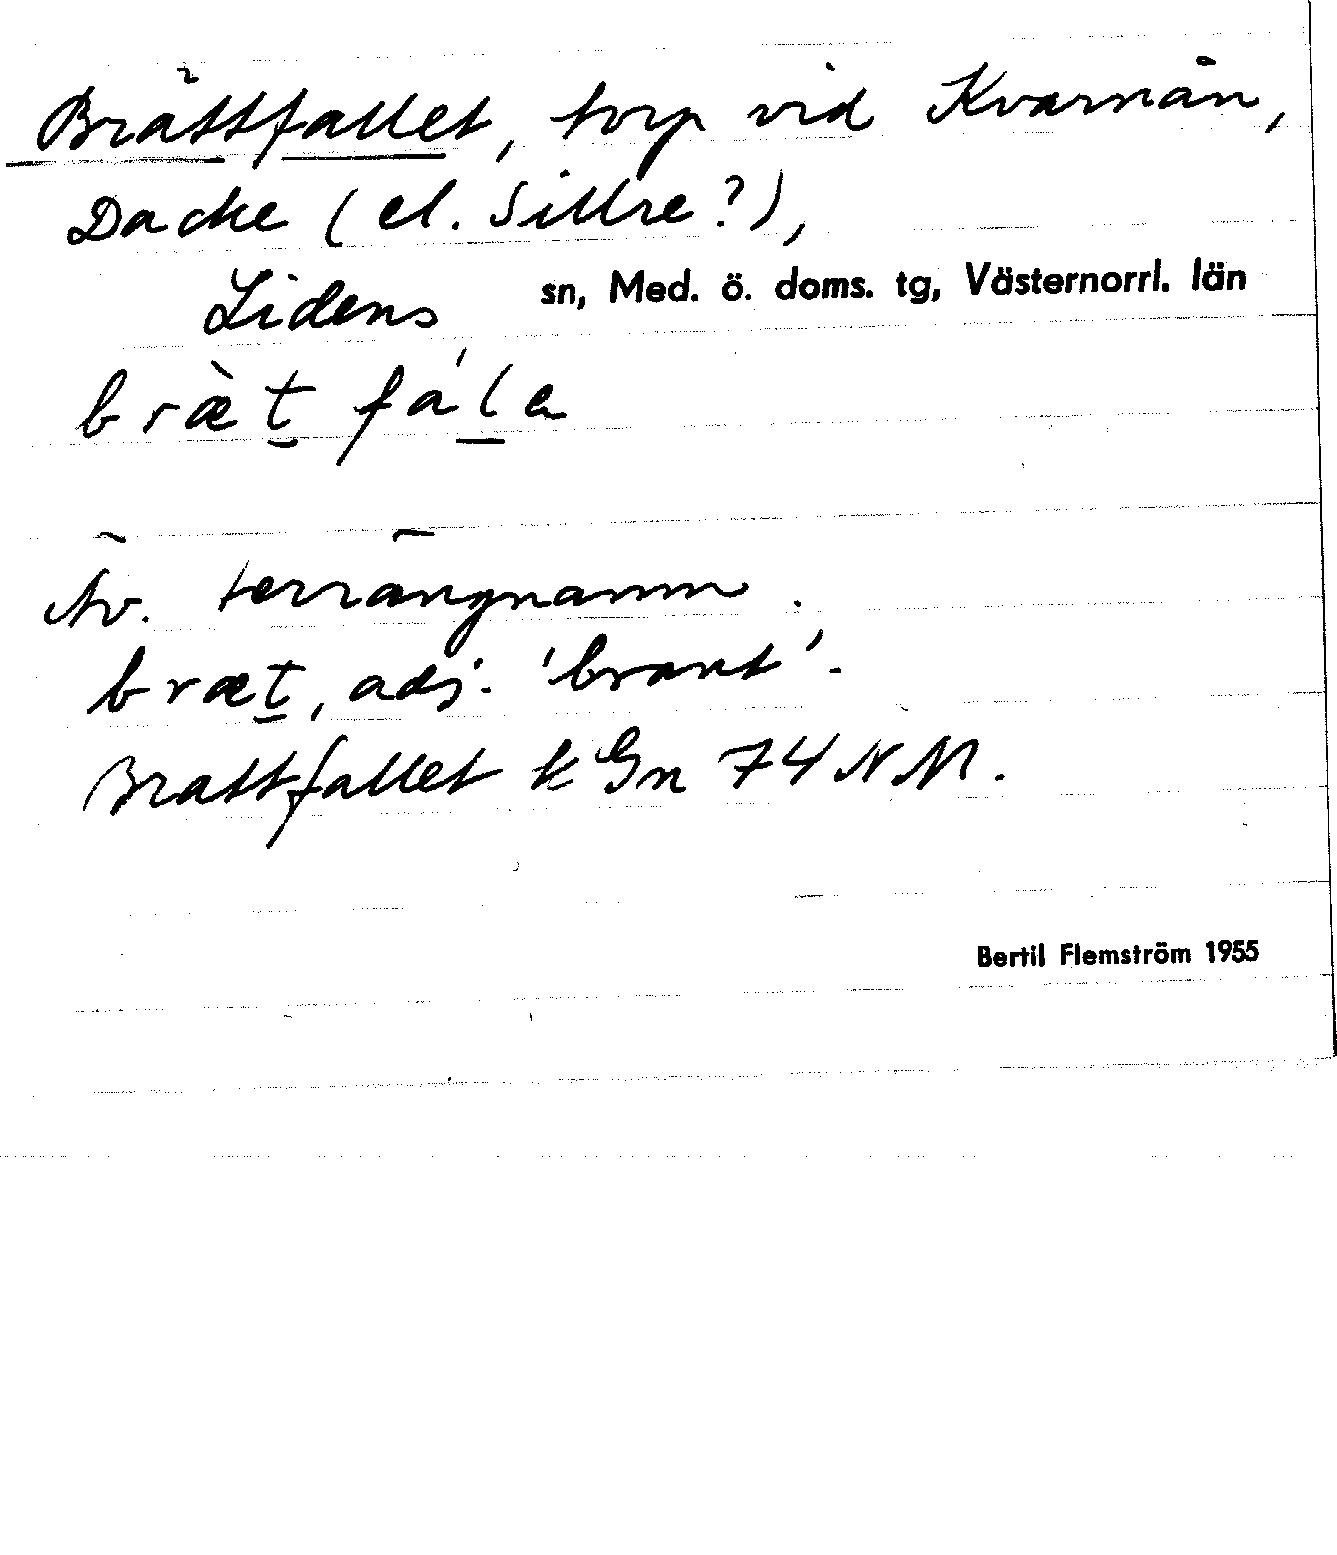 Brättfallet, torp vid Kvarnån,
Dacke (el. Sillre?),
Lidens sn, Med. ö. doms. tg, Västernorrl. län
bræ̀t fála
Äv. terrängnamn.
bræt, adj. 'brant'.
Brattfallet k Gn 74 NM.
Bertil Flemström 1955